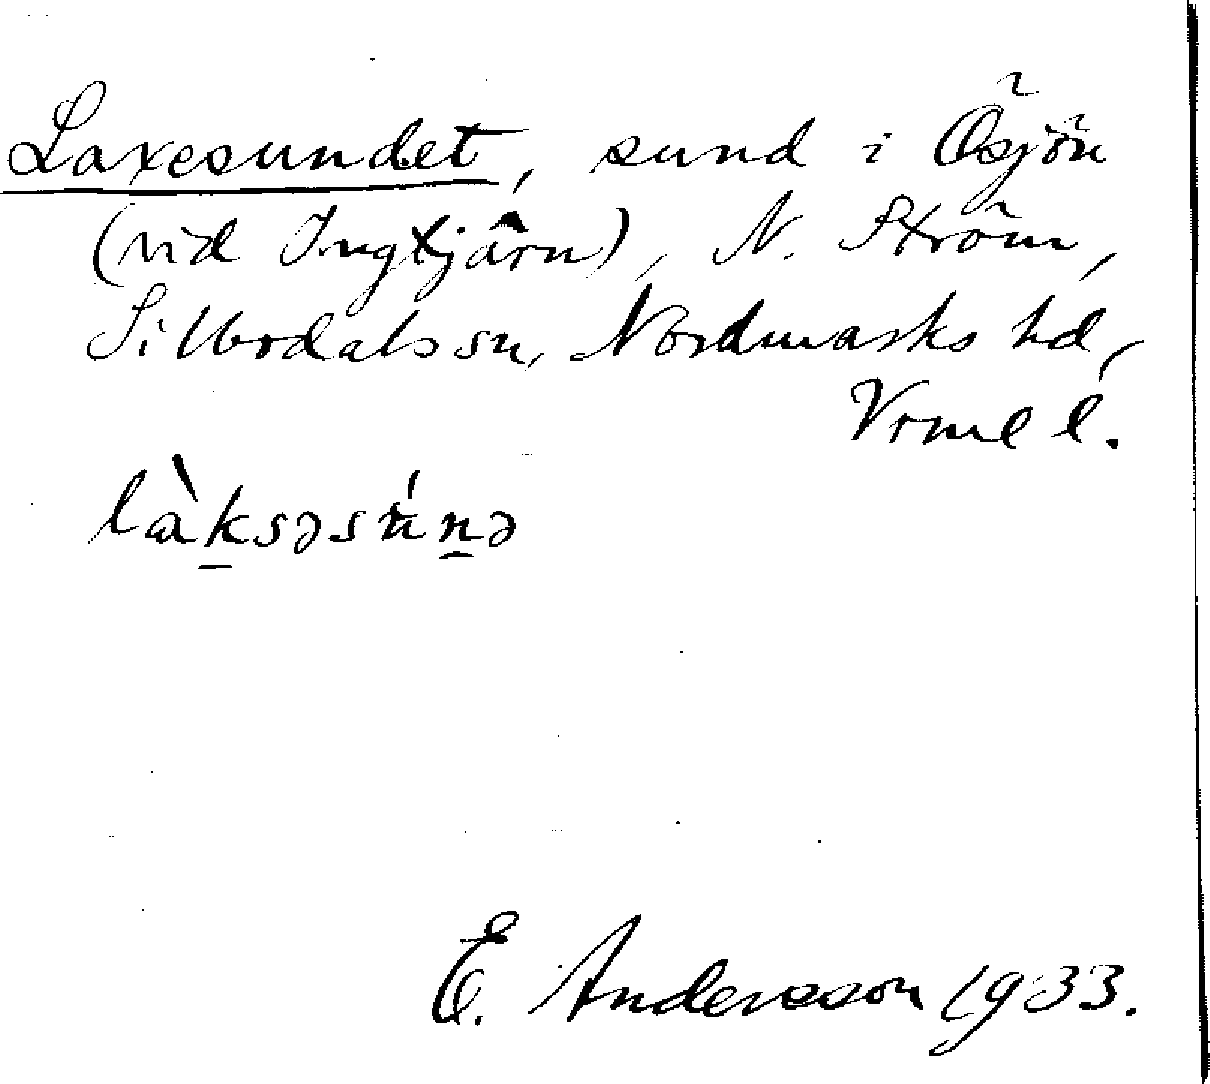 Laxesundet, sund i Ösjön
(vid Ingtjärn), N. Ström,
Sillbodals sn, Nordmarks hd,
Vrml.
làksəsúnə
E. Andersson 1933.